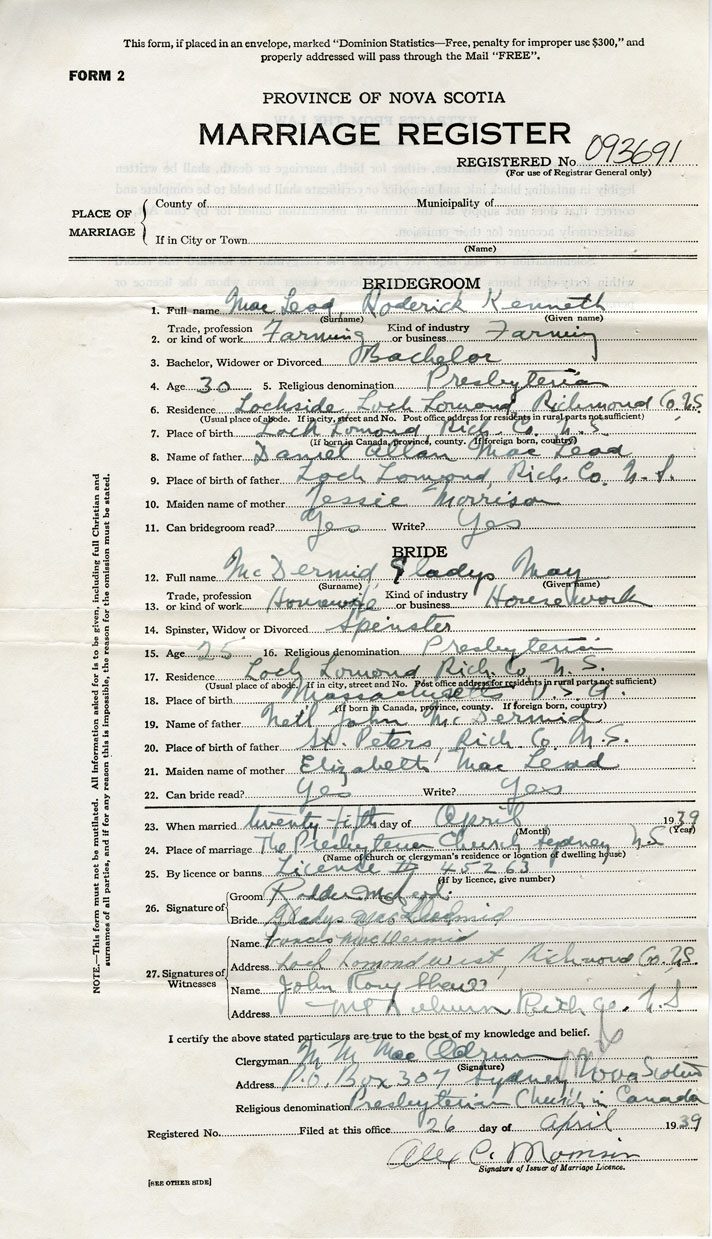 This form, if placed in an envelope, marked "Dominion Statistics—Free, penalty for improper use $300," and
properly addressed will pass through the Mail "FREE".
FORM 2
PROVINCE OF NOVA SCOTIA
MARRIAGE REGISTER
REGISTERED No. 093691
(For use of Registrar General only)
PLACE OF MARRIAGE
County of Municipality of
If in City or Town
(Name)
BRIDEGROOM
1. Full name Mac Leod, Roderick Kenneth
(Surname) (Given name)
2. Trade, profession or kind of work Farming Kind of industry or business Farming
3. Bachelor, Widower or Divorced Bachelor
4. Age 30 5. Religious denomination Presbyterian
6. Residence Lochside, Loch Lomond, Richmond Co. N.S.
(Usual place of abode. If in city, street and No. Post office address for residents in rural parts not sufficient)
7. Place of birth Loch Lomond Rich. Co. N. S.
(If born in Canada, province, county. If foreign born, country)
8. Name of father Daniel Allan Mac Leod
9. Place of birth of father Loch Lomond, Rich. Co. N. S.
10. Maiden name of mother Jessie Morrison
11. Can bridegroom read? Yes Write? Yes
BRIDE
12. Full name McDermid Gladys May
(Surname) (Given name)
13. Trade, profession or kind of work Housewife Kind of industry or business Housework
14. Spinster, Widow or Divorced Spinster
15. Age 25 16. Religious denomination Presbyterian
17. Residence Loch Lomond Rich. Co. N. S.
(Usual place of abode. If in city, street and No. Post office address for residents in rural parts not sufficient)
18. Place of birth Massachusetts U. S. A.
(If born in Canada, province, county. If foreign born, country)
19. Name of father Neil John McDermid
20. Place of birth of father St. Peters, Rich. Co. N.S.
21. Maiden name of mother Elizabeth Mac Leod
22. Can bride read? Yes Write? Yes
23. When married twenty-fifth day of April 1939
(Month) (Year)
24. Place of marriage The Presbyterian Church Sydney N.S.
(Name of church or clergyman's residence or location of dwelling house)
25. By licence or banns License # 45263
(If by licence, give number)
26. Signature of
Groom
Bride Gladys
27. Signatures of Witnesses
Name Francis MacDermid
Address Loch Lomond West, Richmond Co. N.S.
Name John Rory
Address Rich. Co. N.S
I certify the above stated particulars are true to the best of my knowledge and belief.
Clergyman M. M. Mac
(Signature)
Address P.O. Box 307 Sydney Nova Scotia
Religious denomination Presbyterian Church in Canada
Registered No. Filed at this office 26 day of April 1939
Alex C. Morrison
Signature of Issuer of Marriage Licence.
[SEE OTHER SIDE]
NOTE.—This form must not be mutilated. All information asked for is to be given, including full Christian and
surnames of all parties, and if for any reason this is impossible, the reason for the omission must be stated.